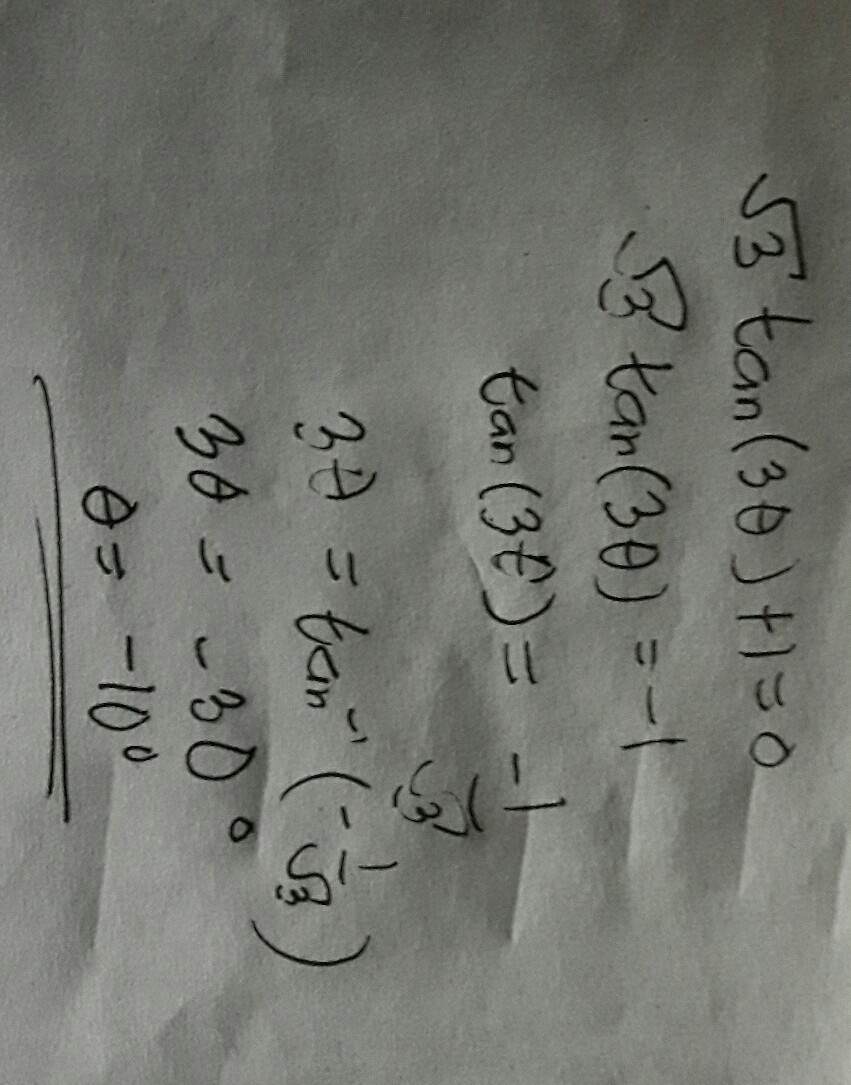 √3 tan(3θ)+1=0
√3 tan(3θ) = -1
tan(3θ) = -1/√3
3θ = tan⁻¹(-1/√3)
3θ = -30°
θ = -10°